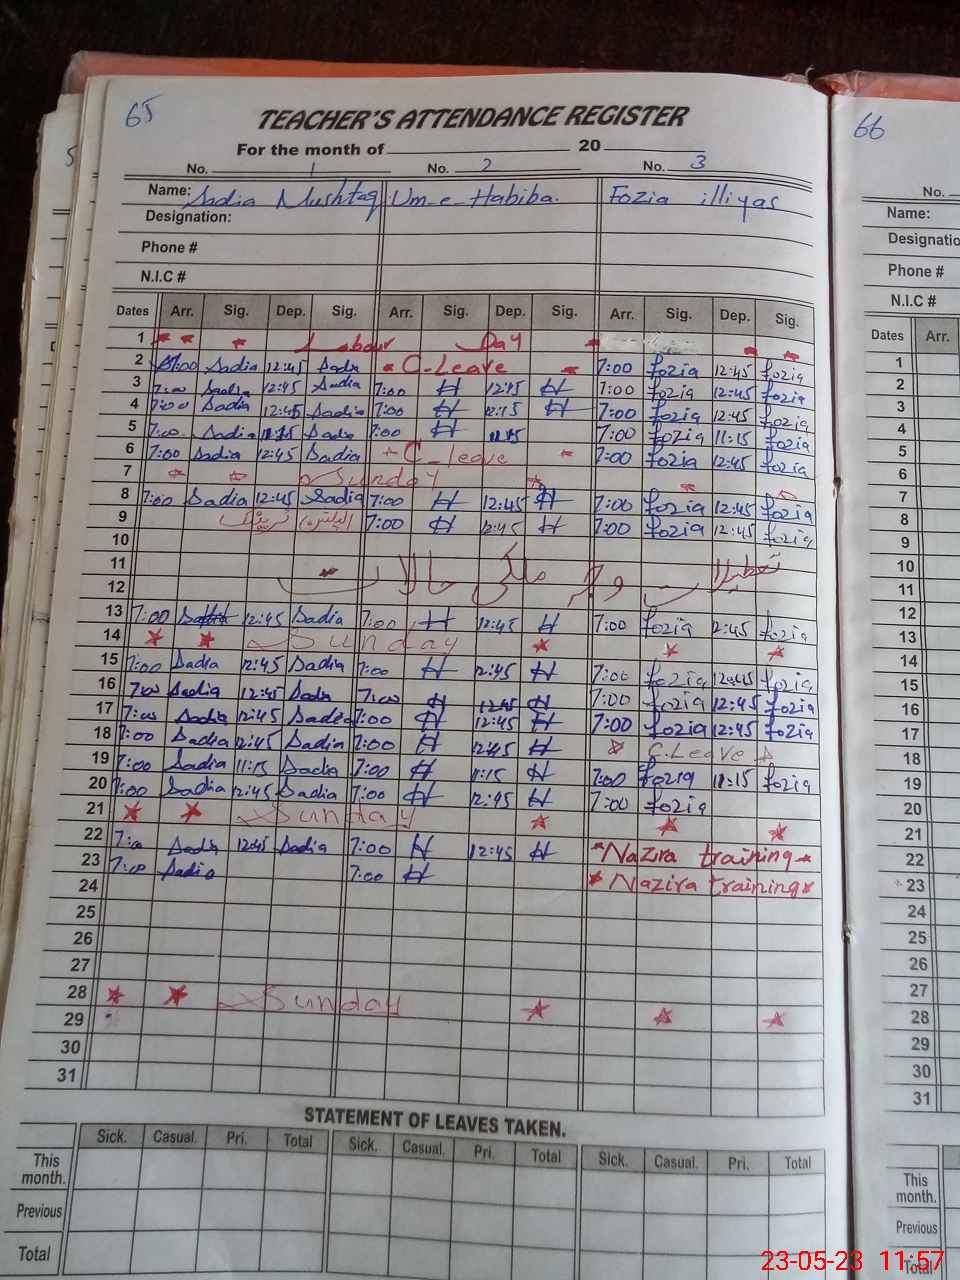 65
66
5
TEACHER'S ATTENDANCE REGISTER
For the month of 20
No. 1 No. 2 No. 3
No.
Name: Sadia Mushtaq Um-e-Habiba. Fozia illiyas
Name:
Designation:
Designatio
Phone #
Phone #
N.I.C #
N.I.C #
Dates Arr. Sig. Dep. Sig. Arr. Sig. Dep. Sig. Arr. Sig. Dep. Sig.
Dates Arr.
1 Labour Day
2 7:00 Sadia 12:45 Sadia C-Leave 7:00 fozia 12:45 fozia
3 7:00 Sadia 12:45 Sadia 7:00 H 12:15 H 7:00 fozia 12:45 fozia
4 7:00 Sadia 12:45 Sadia 7:00 H 12:15 H 7:00 fozia 12:45 fozia
5 7:00 Sadia 11:15 Sadia 7:00 H 11:15 7:00 fozia 11:15 fozia
6 7:00 Sadia 12:45 Sadia C-leave 7:00 fozia 12:45 fozia
7 Sunday
8 7:00 Sadia 12:45 Sadia 7:00 H 12:45 H 7:00 fozia 12:45 fozia
9 7:00 H 12:45 H 7:00 fozia 12:45 fozia
10
11 تعطیلات بوجہ ملکی حالات
12
13 7:00 Sadia 12:45 Sadia 7:00 H 12:45 H 7:00 fozia 12:45 fozia
14 Sunday
15 7:00 Sadia 12:45 Sadia 7:00 H 12:45 H 7:00 fozia 12:45 fozia
16 7:00 Sadia 12:45 Sadia 7:00 H 12:45 H 7:00 fozia 12:45 fozia
17 7:00 Sadia 12:45 Sadia 7:00 H 12:45 H 7:00 fozia 12:45 fozia
18 7:00 Sadia 12:45 Sadia 7:00 H 12:45 H C.Leave
19 7:00 Sadia 11:15 Sadia 7:00 H 11:15 H 7:00 fozia 11:15 fozia
20 7:00 Sadia 12:45 Sadia 7:00 H 12:45 H 7:00 fozia
21 Sunday
22 7:00 Sadia 12:45 Sadia 7:00 H 12:45 H Nazira training
23 7:00 Sadia 7:00 H Nazira training
24
25
26
27
28 Sunday
29
30
31
1
2
3
4
5
6
7
8
9
10
11
12
13
14
15
16
17
18
19
20
21
22
23
24
25
26
27
28
29
30
31
STATEMENT OF LEAVES TAKEN.
Sick. Casual. Pri. Total Sick. Casual. Pri. Total Sick. Casual. Pri. Total
This month.
Previous
Total
This month.
Previous
Total
23-05-23 11:57